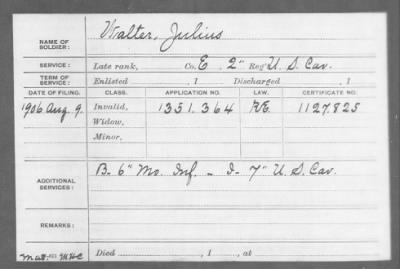 NAME OF SOLDIER: Walter, Julius
SERVICE: Late rank, Co. E. 2" Reg't U. S. Cav.
TERM OF SERVICE: Enlisted , 1 Discharged , 1
DATE OF FILING. CLASS. APPLICATION NO. LAW. CERTIFICATE NO.
1906 Aug. 9. Invalid, 1351.364 1127825
Widow,
Minor,
ADDITIONAL SERVICES: B- 6" Mo. Inf. - I- 7" U. S. Cav.
REMARKS:
Died , 1 , at